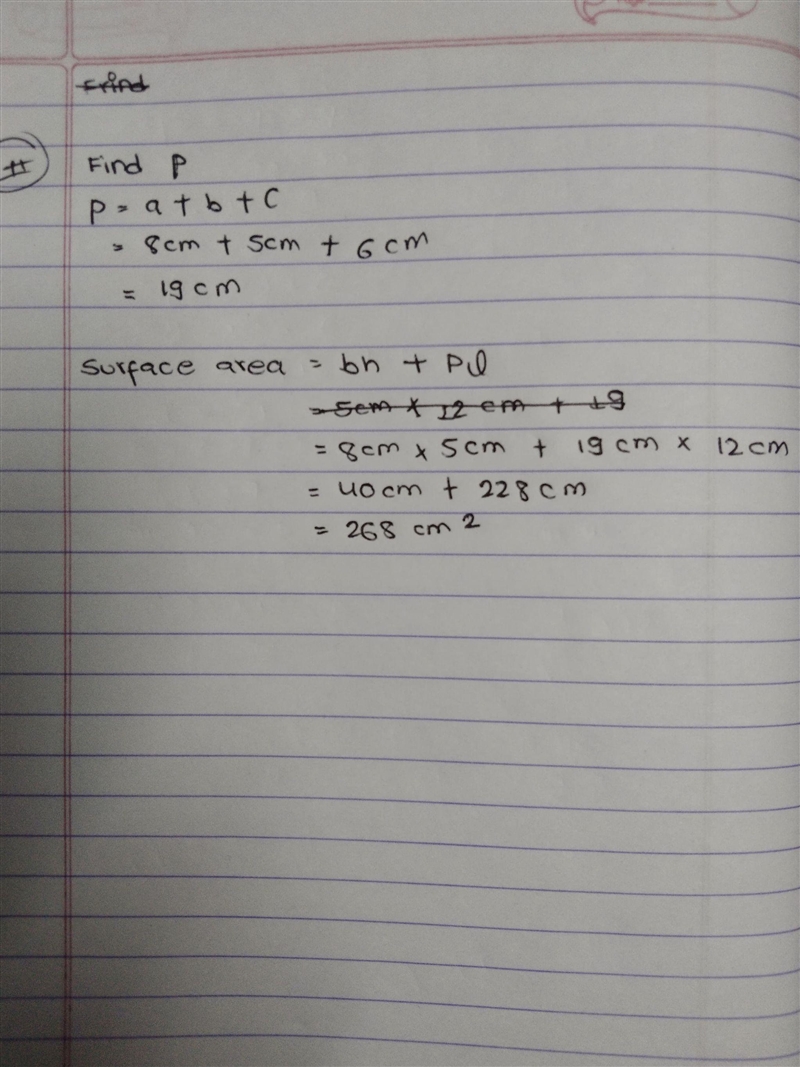 Find
# Find P
P = a + b + c
= 8cm + 5cm + 6cm
= 19 cm
surface area = bh + Pl
= 5cm × 12 cm + 19
= 8cm × 5cm + 19cm × 12cm
= 40cm + 228cm
= 268 cm²